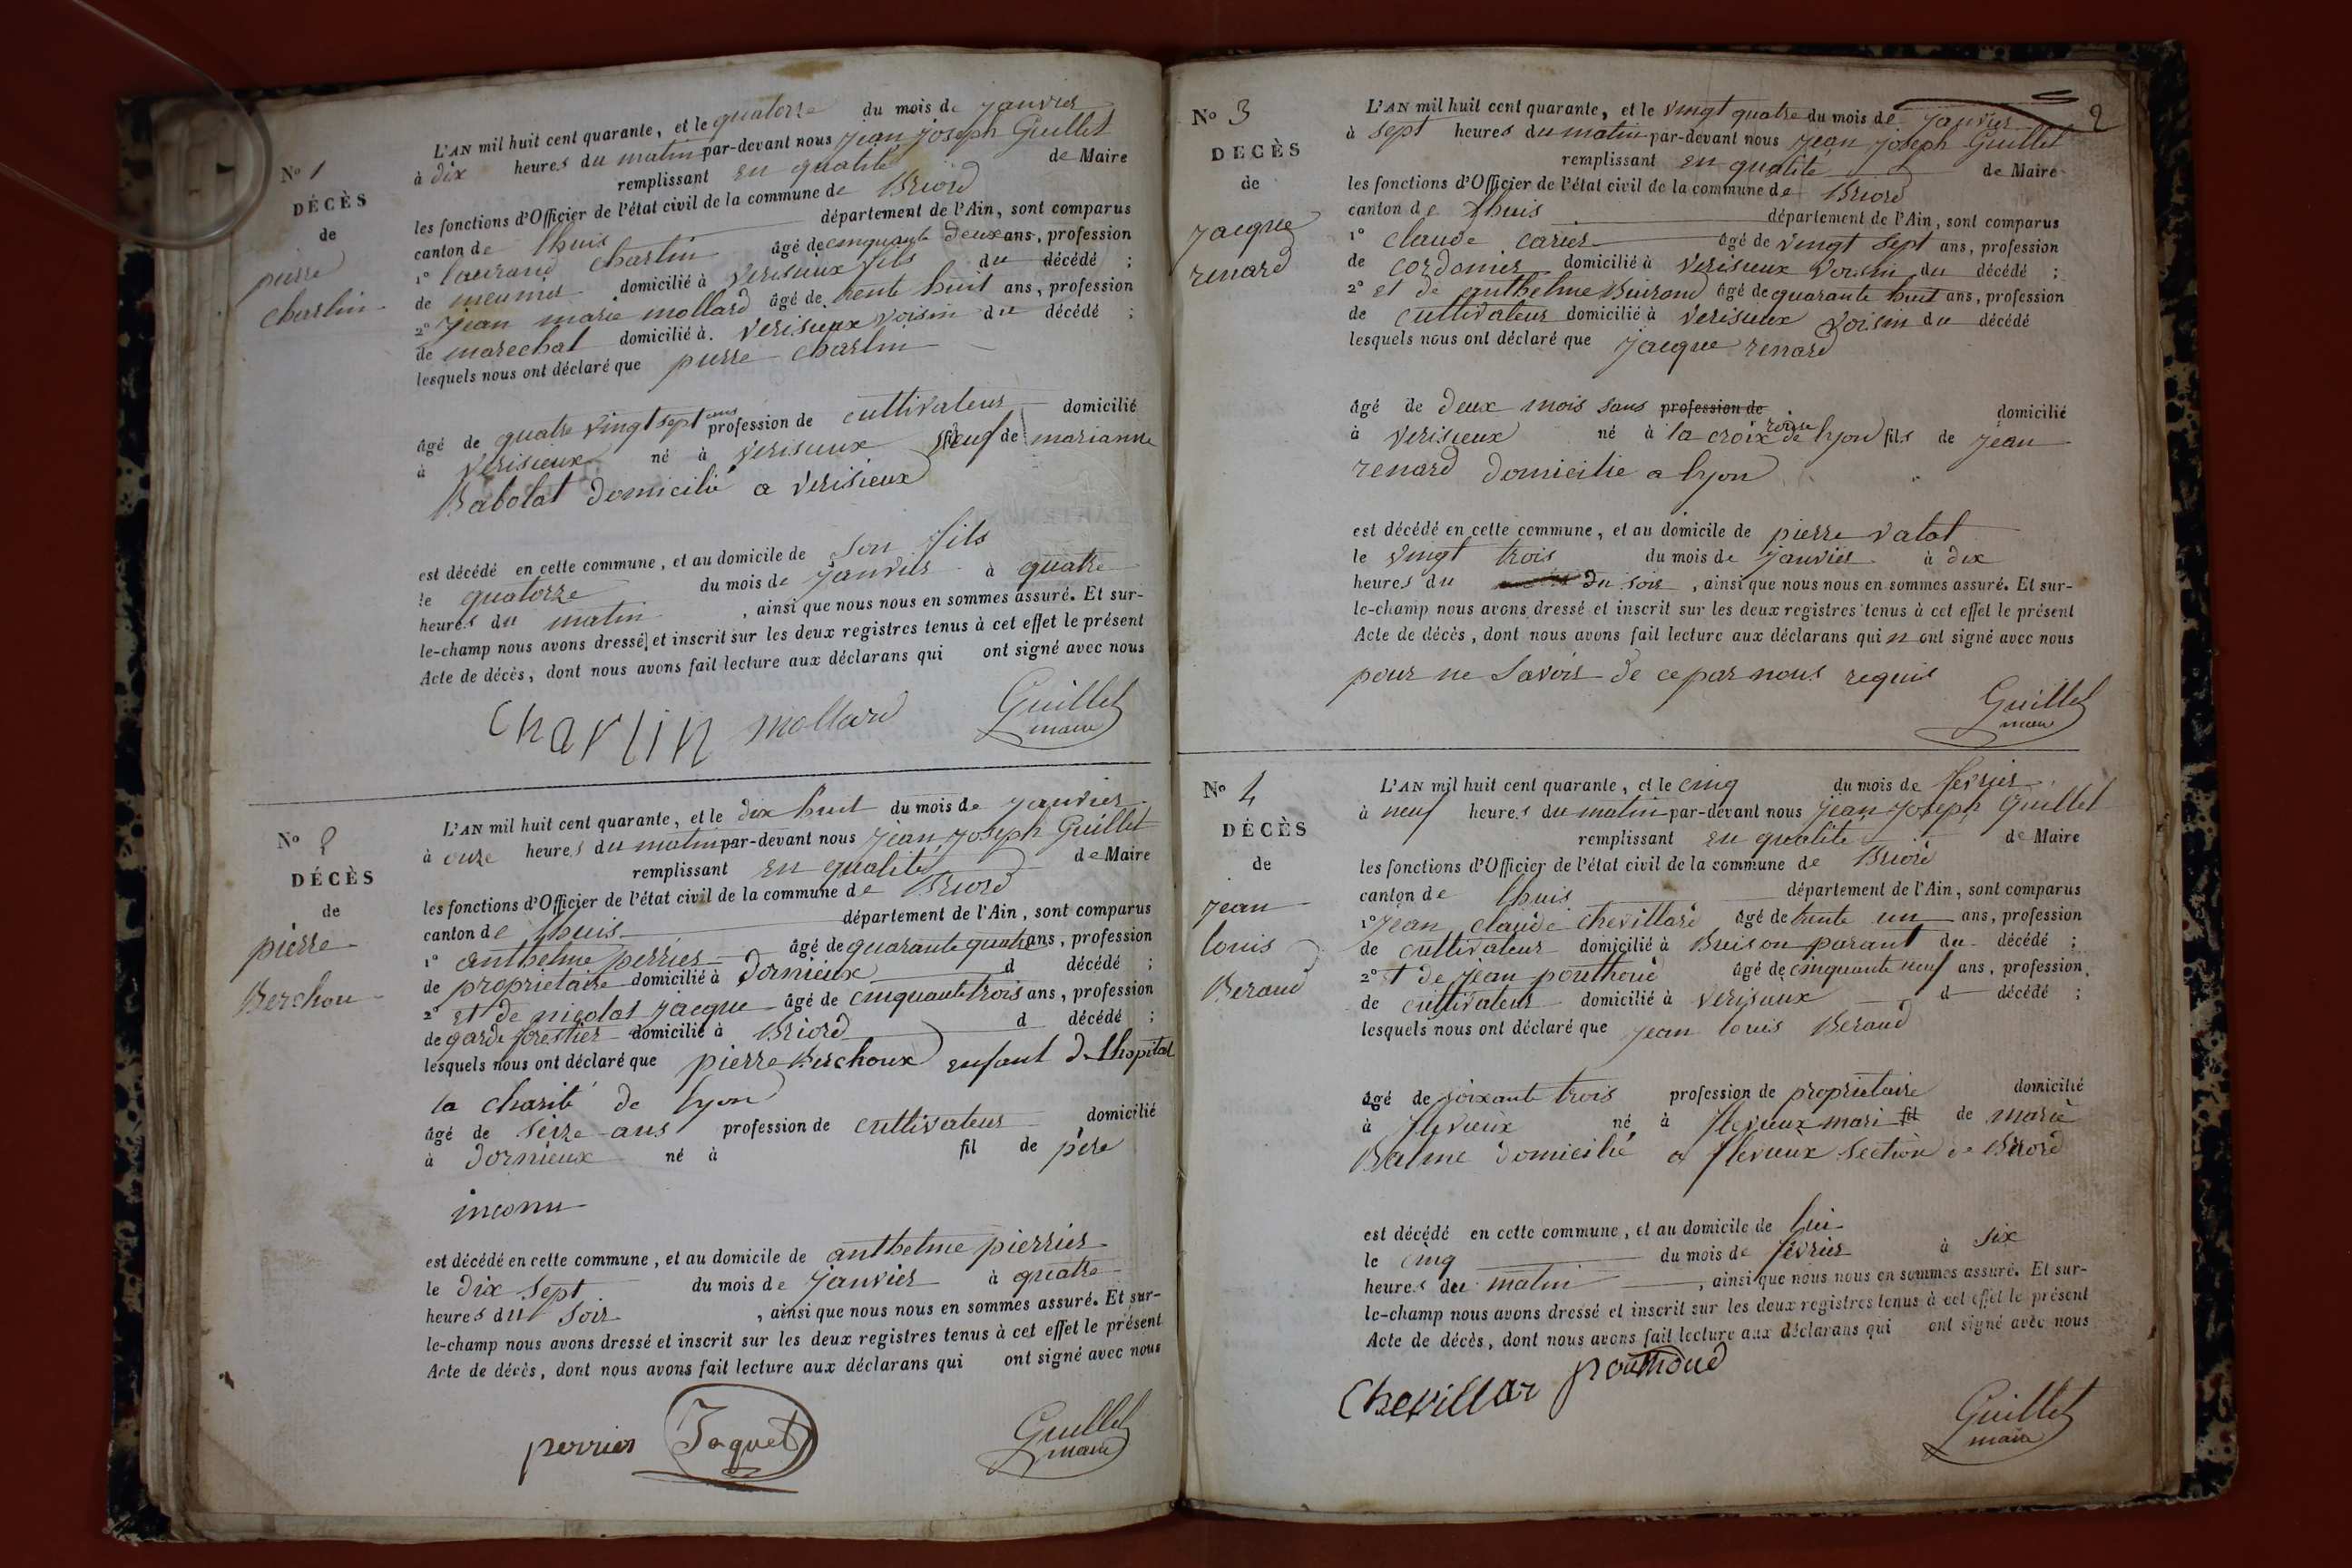 No 1
DÉCÈS
de
pierre
charlin
L'AN mil huit cent quarante, et le quatorze du mois de janvier
à dix heures du matin par-devant nous jean joseph Guillet
remplissant en qualité de Maire
les fonctions d'Officier de l'état civil de la commune de Briord
canton de lhuis département de l'Ain, sont comparus
1° laurand charlin âgé de cinquante deux ans, profession
de meunier domicilié à verisieux fils du décédé ;
2° jean marie mollard âgé de trente huit ans, profession
de marechal domicilié à verisieux voisin du décédé ;
lesquels nous ont déclaré que pierre charlin
âgé de quatre vingt sept ans profession de cultivateur domicilié
à verisieux né à verisieux veuf de marianne
Babolat domicilié a verisieux
est décédé en cette commune, et au domicile de son fils
le quatorze du mois de janvier à quatre
heures du matin, ainsi que nous nous en sommes assuré. Et sur-
le-champ nous avons dressé et inscrit sur les deux registres tenus à cet effet le présent
Acte de décès, dont nous avons fait lecture aux déclarans qui ont signé avec nous
Charlin mollard Guillet
maire
No 2
DÉCÈS
de
pierre
Berchou
L'AN mil huit cent quarante, et le dix huit du mois de janvier
à onze heures du matin par-devant nous jean joseph Guillet
remplissant en qualité de Maire
les fonctions d'Officier de l'état civil de la commune de Briord
canton de lhuis département de l'Ain, sont comparus
1° anthelme perrier âgé de quarante quatre ans, profession
de proprietaire domicilié à Dornieux d décédé ;
2° et de nicolas jacque âgé de cinquante trois ans, profession
de garde forestier domicilié à Briord d décédé ;
lesquels nous ont déclaré que pierre Berchoux enfant de lhopital
la charité de lyon
âgé de seize ans profession de cultivateur domicilié
à dornieux né à fil de père
inconu
est décédé en cette commune, et au domicile de anthelme pierrier
le dix sept du mois de janvier à quatre
heures du soir, ainsi que nous nous en sommes assuré. Et sur-
le-champ nous avons dressé et inscrit sur les deux registres tenus à cet effet le présent
Acte de décès, dont nous avons fait lecture aux déclarans qui ont signé avec nous
perrier Jaquet Guillet
maire
2
No 3
DECÈS
de
jacque
renard
L'AN mil huit cent quarante, et le vingt quatre du mois de janvier
à sept heures du matin par-devant nous jean joseph Guillet
remplissant en qualité de Maire
les fonctions d'Officier de l'état civil de la commune de Briord
canton de lhuis département de l'Ain, sont comparus
1° claude carier âgé de vingt sept ans, profession
de cordonier domicilié à verisieux voisin du décédé ;
2° et de anthelme Buirond âgé de quarante huit ans, profession
de cultivateur domicilié à verisieux voisin du décédé
lesquels nous ont déclaré que jacque renard
âgé de deux mois sans profession de domicilié
à verisieux né à la croix rousse de lyon fils de jean
renard domicilie a lyon
est décédé en cette commune, et au domicile de pierre valat
le vingt trois du mois de janvier à dix
heures du du soir, ainsi que nous nous en sommes assuré. Et sur-
le-champ nous avons dressé et inscrit sur les deux registres tenus à cet effet le présent
Acte de décès, dont nous avons fait lecture aux déclarans qui n ont signé avec nous
pour ne savoir de ce par nous requis
Guillet
maire
No 4
DÉCÈS
de
jean
louis
Beraud
L'AN mil huit cent quarante, et le cinq du mois de fevrier
à neuf heures du matin par-devant nous jean joseph Guillet
remplissant en qualité de Maire
les fonctions d'Officier de l'état civil de la commune de Briord
canton de lhuis département de l'Ain, sont comparus
1° jean claude chevillard âgé de trente un ans, profession
de cultivateur domicilié à Buison parant du décédé ;
2° et de jean pouthoud âgé de cinquante neuf ans, profession
de cultivateur domicilié à verisieux d décédé ;
lesquels nous ont déclaré que jean louis Beraud
âgé de soixante trois profession de proprietaire domicilié
à flevieux né à flevieux mari fil de marie
Balme domicilié a flevieux section de Briord
est décédé en cette commune, et au domicile de lui
le cinq du mois de fevrier à six
heures du matin, ainsi que nous nous en sommes assuré. Et sur-
le-champ nous avons dressé et inscrit sur les deux registres tenus à cet effet le présent
Acte de décès, dont nous avons fait lecture aux déclarans qui ont signé avec nous
Chevillar pouthoud
Guillet
maire